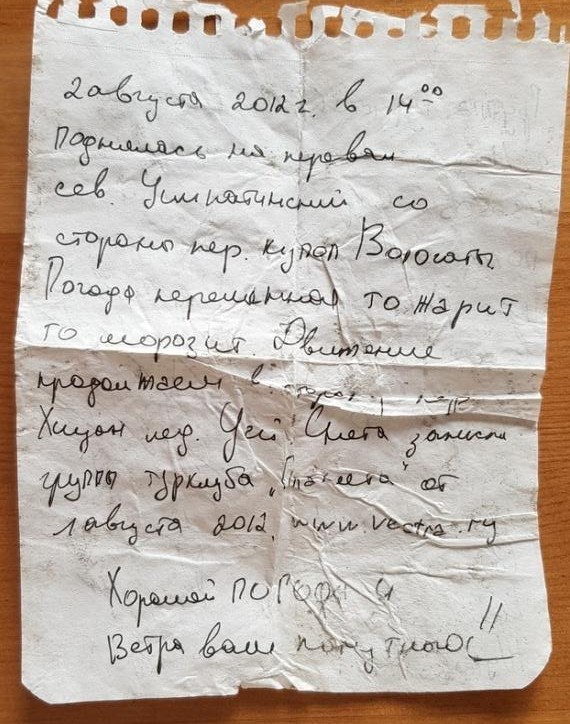 2 августа 2012 г. в 14⁰⁰
поднялась на перевал
сев. со
стороны пер. купол
Погода переменная то жарит
то морозит. Движение
продолжаем в
пер. Снята записка
группы турклуба от
1 августа 2012. www.vectra.ru
Хорошей погоды и
Ветра вам попутного